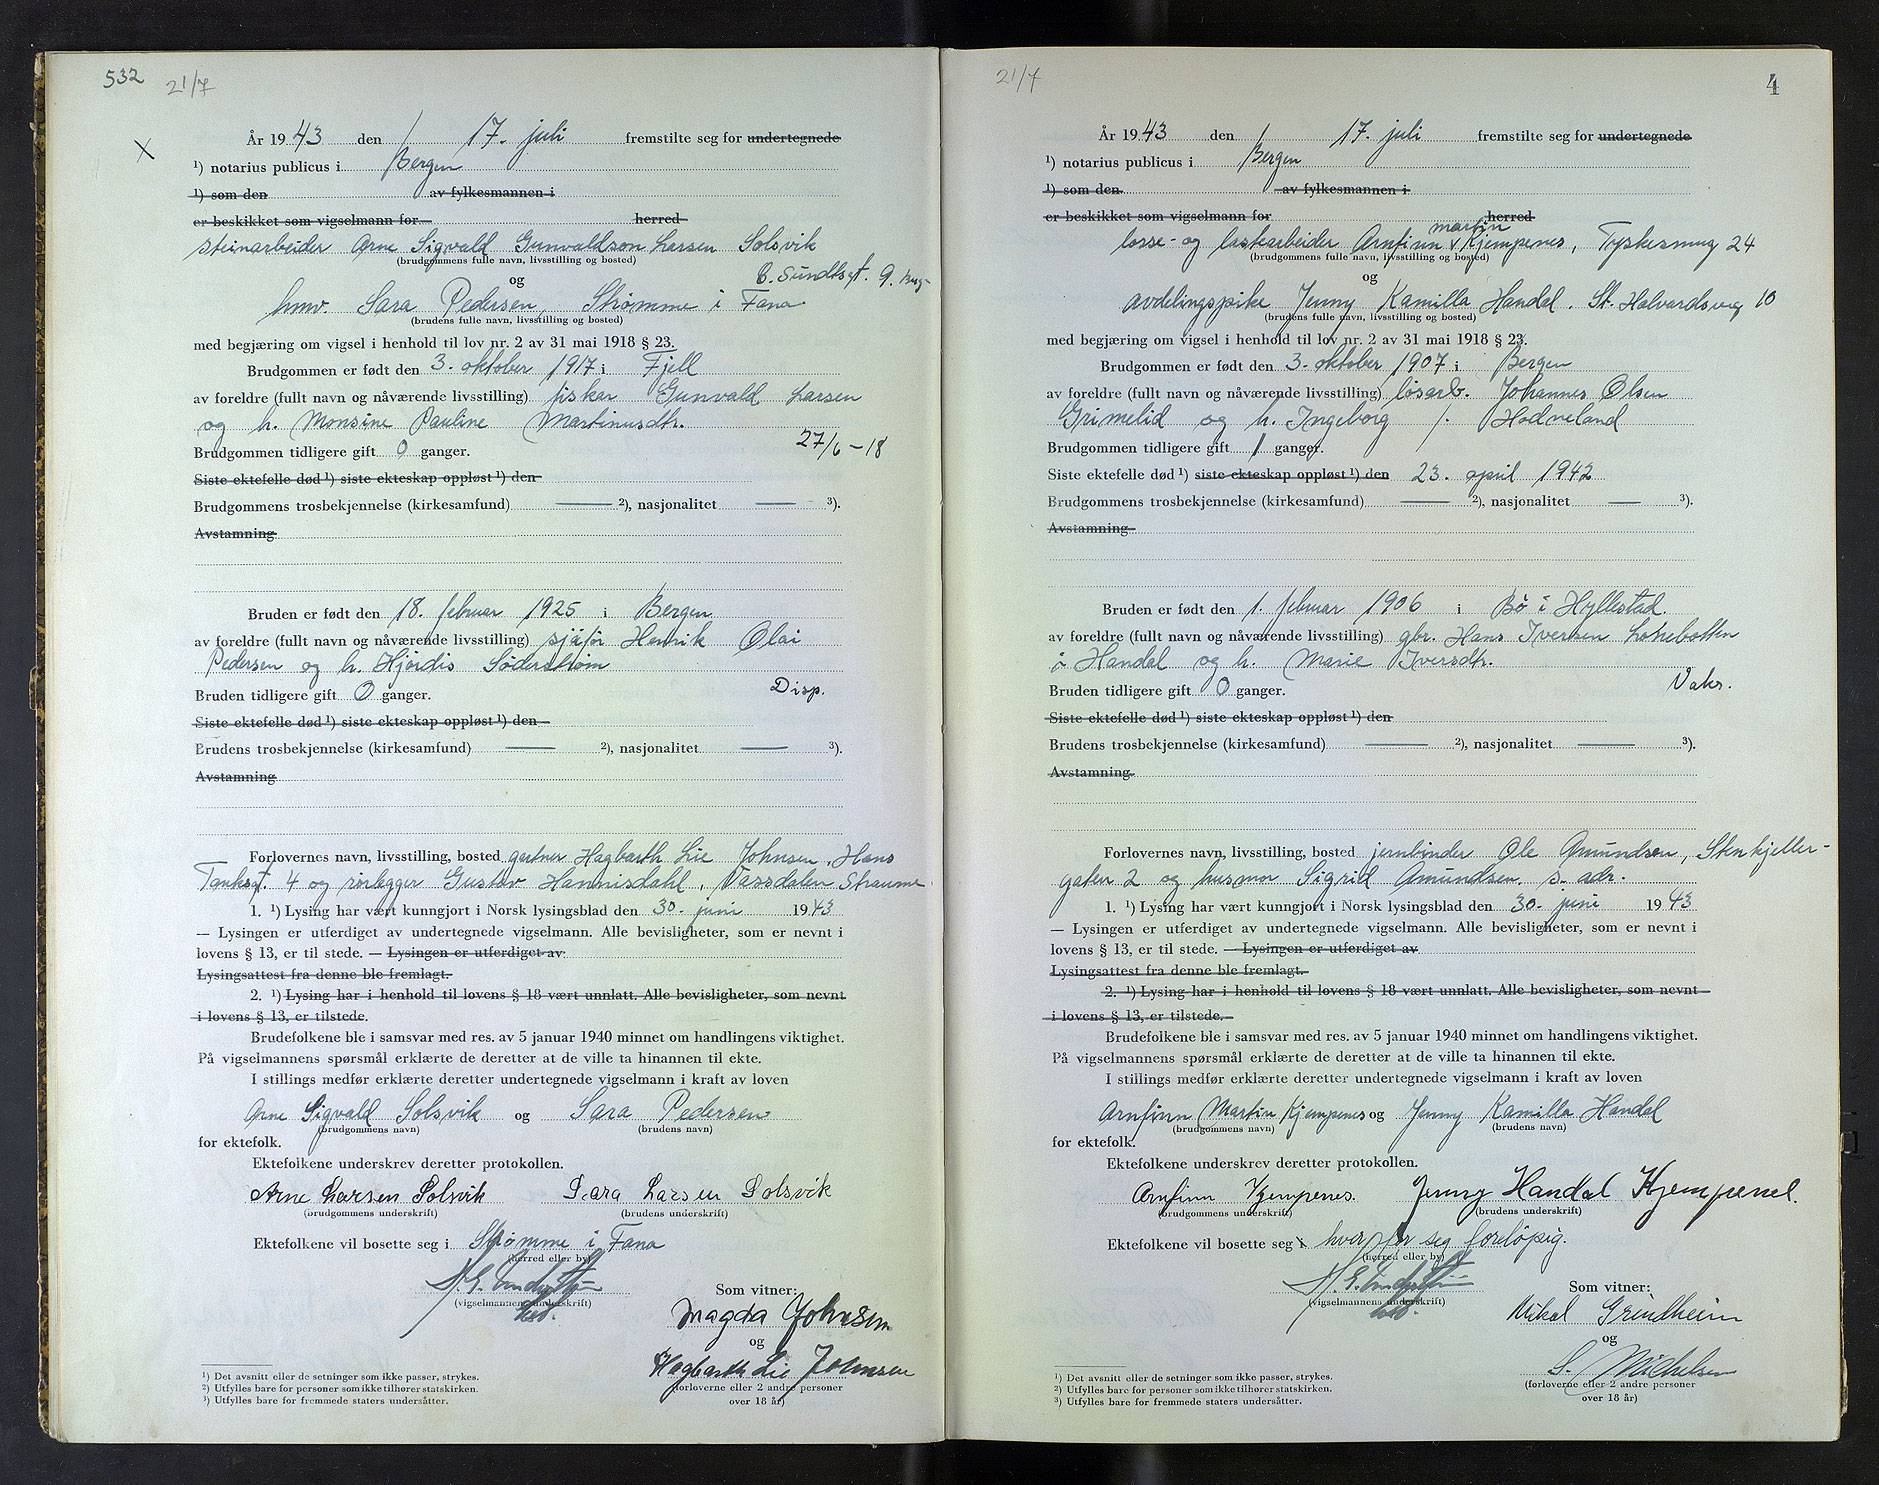 532 21/7
År 1943 den 17. juli fremstilte seg for undertegnede
¹) notarius publicus i Bergen
¹) som den av fylkesmannen i
er beskikket som vigselmann for herred
steinarbeider Arne Sigvald Gunvaldson Larsen Solsvik
(brudgommens fulle navn, livsstilling og bosted)
og E. Sundtsgt. 9. Brg.
hmv. Sara Pedersen, Strømme i Fana
(brudens fulle navn, livsstilling og bosted)
med begjæring om vigsel i henhold til lov nr. 2 av 31 mai 1918 § 23.
Brudgommen er født den 3. oktober 1917 i Fjell
av foreldre (fullt navn og nåværende livsstilling) fiskar Gunvald Larsen
og h. Monsine Pauline Martinusdtr.
Brudgommen tidligere gift 0 ganger. 27/6 – 18
Siste ektefelle død ¹) siste ekteskap oppløst ¹) den
Brudgommens trosbekjennelse (kirkesamfund) — ²), nasjonalitet — ³).
Avstamning
Bruden er født den 18. februar 1925 i Bergen
av foreldre (fullt navn og nåværende livsstilling) sjåfør Henrik Olai
Pedersen og h. Hjørdis Söderstrøm
Bruden tidligere gift 0 ganger. Disp.
Siste ektefelle død ¹) siste ekteskap oppløst ¹) den
Brudens trosbekjennelse (kirkesamfund) — ²), nasjonalitet — ³).
Avstamning
Forlovernes navn, livsstilling, bosted gartner Hagbarth Lie Johnsen, Hans
Tanksgt. 4 og rørlegger Gustav Hannisdahl, Vassdalen Straume
1. ¹) Lysing har vært kunngjort i Norsk lysingsblad den 30. juni 1943
— Lysingen er utferdiget av undertegnede vigselmann. Alle bevisligheter, som er nevnt i
lovens § 13, er til stede. — Lysingen er utferdiget av
Lysingsattest fra denne ble fremlagt.
2. ¹) Lysing har i henhold til lovens § 18 vært unnlatt. Alle bevisligheter, som nevnt
i lovens § 13, er tilstede.
Brudefolkene ble i samsvar med res. av 5 januar 1940 minnet om handlingens viktighet.
På vigselmannens spørsmål erklærte de deretter at de ville ta hinannen til ekte.
I stillings medfør erklærte deretter undertegnede vigselmann i kraft av loven
Arne Sigvald Solsvik og Sara Pedersen
(brudgommens navn) (brudens navn)
for ektefolk.
Ektefolkene underskrev deretter protokollen.
Arne Larsen Solsvik Sara Larsen Solsvik
(brudgommens underskrift) (brudens underskrift)
Ektefolkene vil bosette seg i Strømme i Fana
(herred eller by)
(vigselmannens underskrift) Som vitner:
Magda Johnsen
og
Hagbarth Lie Johnsen
(forloverne eller 2 andre personer
over 18 år)
¹) Det avsnitt eller de setninger som ikke passer, strykes.
²) Utfylles bare for personer som ikke tilhører statskirken.
³) Utfylles bare for fremmede staters undersåtter.
21/7 4
År 1943 den 17. juli fremstilte seg for undertegnede
¹) notarius publicus i Bergen
¹) som den av fylkesmannen i
er beskikket som vigselmann for herred
losse- og lastearbeider Arnfinn Martin Kjempenes, Tyskesmug 24
(brudgommens fulle navn, livsstilling og bosted)
og
avdelingspike Jenny Kamilla Handal. St. Halvardsveg 10
(brudens fulle navn, livsstilling og bosted)
med begjæring om vigsel i henhold til lov nr. 2 av 31 mai 1918 § 23.
Brudgommen er født den 3. oktober 1907 i Bergen
av foreldre (fullt navn og nåværende livsstilling) løsarb. Johannes Olsen
Grimelid og h. Ingeborg f. Hodneland
Brudgommen tidligere gift 1 ganger.
Siste ektefelle død ¹) siste ekteskap oppløst ¹) den 23. april 1942
Brudgommens trosbekjennelse (kirkesamfund) — ²), nasjonalitet — ³).
Avstamning
Bruden er født den 1. februar 1906 i Bø i Hyllestad
av foreldre (fullt navn og nåværende livsstilling) gbr. Hans Iversen Lokebotten
i Handal og h. Marie Iversdtr.
Bruden tidligere gift 0 ganger. Vaks.
Siste ektefelle død ¹) siste ekteskap oppløst ¹) den
Brudens trosbekjennelse (kirkesamfund) — ²), nasjonalitet — ³).
Avstamning
Forlovernes navn, livsstilling, bosted jernbinder Ole Amundsen, Stenkjeller-
gaten 2 og husmor Sigrid Amundsen. s. adr.
1. ¹) Lysing har vært kunngjort i Norsk lysingsblad den 30. juni 1943
— Lysingen er utferdiget av undertegnede vigselmann. Alle bevisligheter, som er nevnt i
lovens § 13, er til stede. — Lysingen er utferdiget av
Lysingsattest fra denne ble fremlagt.
2. ¹) Lysing har i henhold til lovens § 18 vært unnlatt. Alle bevisligheter, som nevnt
i lovens § 13, er tilstede.
Brudefolkene ble i samsvar med res. av 5 januar 1940 minnet om handlingens viktighet.
På vigselmannens spørsmål erklærte de deretter at de ville ta hinannen til ekte.
I stillings medfør erklærte deretter undertegnede vigselmann i kraft av loven
Arnfinn Martin Kjempenes og Jenny Kamilla Handal
(brudgommens navn) (brudens navn)
for ektefolk.
Ektefolkene underskrev deretter protokollen.
Arnfinn Kjempenes. Jenny Handal Kjempenes.
(brudgommens underskrift) (brudens underskrift)
Ektefolkene vil bosette seg i hver for seg foreløpig.
(herred eller by)
(vigselmannens underskrift) Som vitner:
Mikal Grindheim
og
S. Michelsen
(forloverne eller 2 andre personer
over 18 år)
¹) Det avsnitt eller de setninger som ikke passer, strykes.
²) Utfylles bare for personer som ikke tilhører statskirken.
³) Utfylles bare for fremmede staters undersåtter.